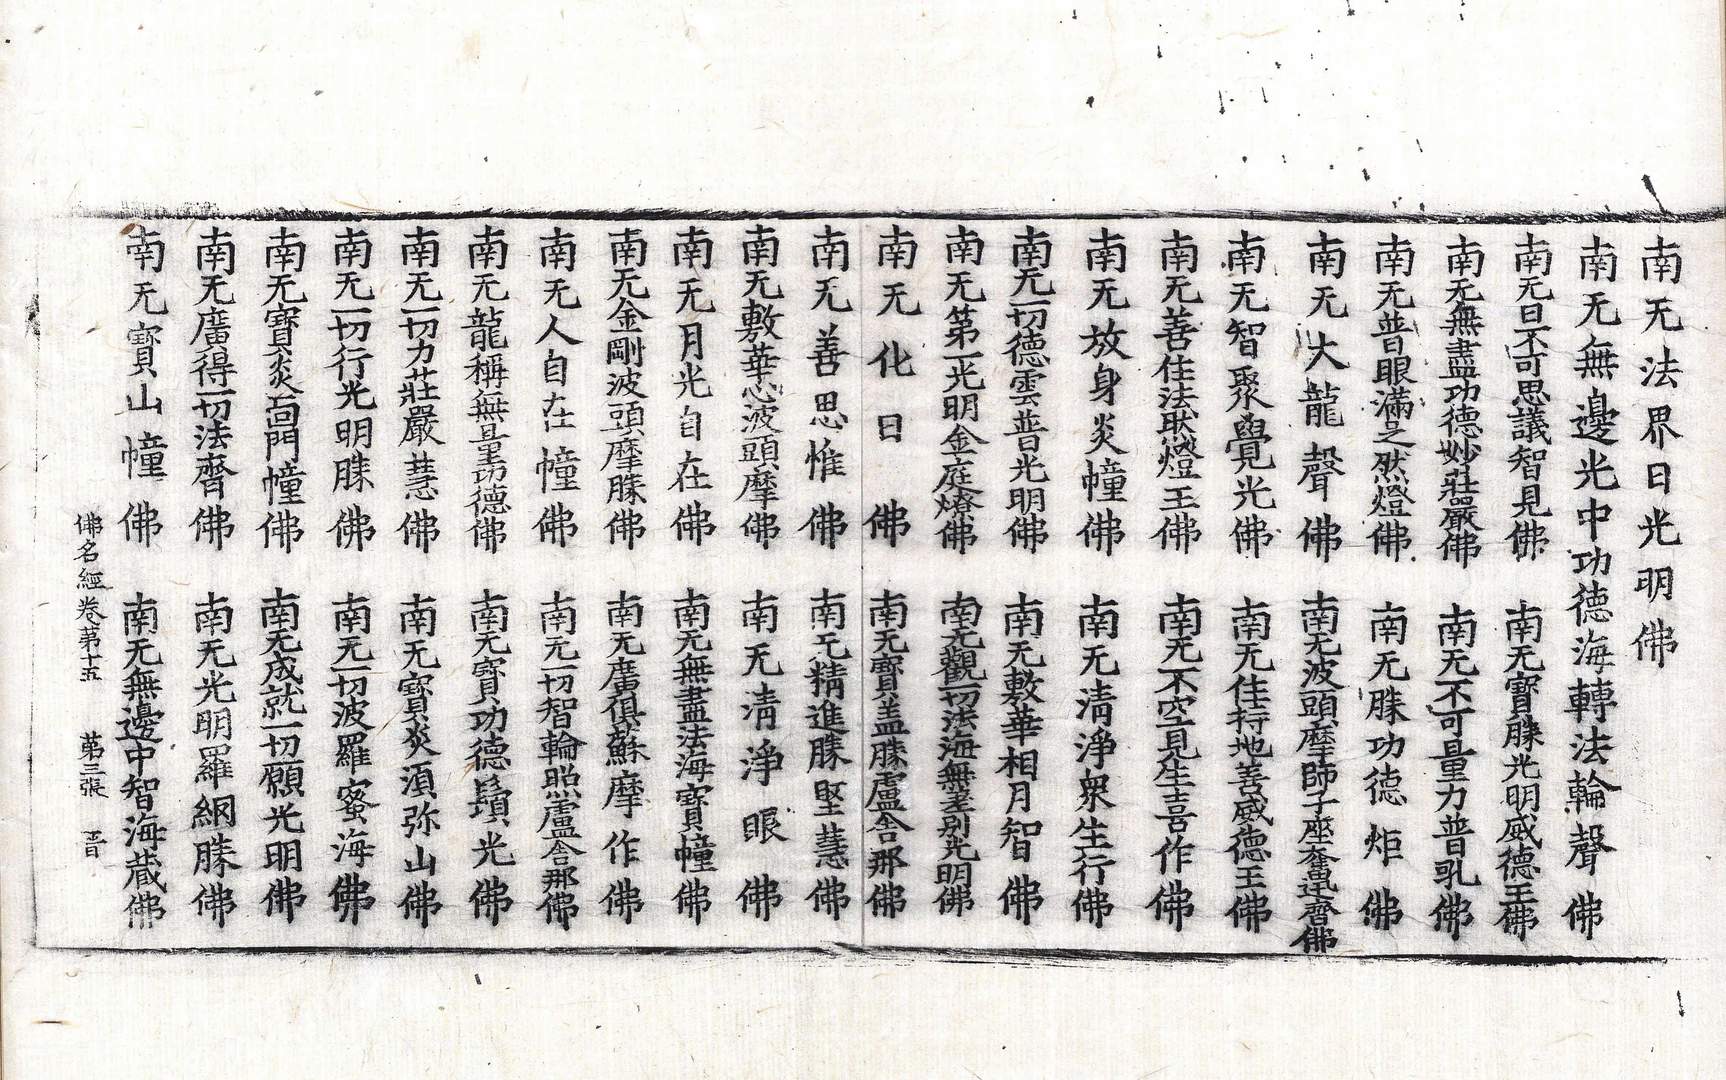 南无法界日光明佛
南无無邊光中功德海轉法輪聲佛
南无日不可思議智見佛　南无寶勝光明威德王佛
南无無盡功德妙莊嚴佛　南无不可量力普吼佛
南无普眼滿足然燈佛　南无勝功德炬佛
南无大龍聲佛　南无波頭摩師子座奮迅齊佛
南无智聚覺光佛　南无住持地善威德王佛
南无善住法然燈王佛　南无不空見生喜作佛
南无放身炎幢佛　南无清淨衆生行佛
南无一切德雲普光明佛　南无敷華相月智佛
南无第一光明金庭燎佛　南无觀一切法海無差别光明佛
南无化日佛　南无寶盖勝盧舍那佛
南无善思惟佛　南无精進勝堅慧佛
南无敷華心波頭摩佛　南无清淨眼佛
南无月光自在佛　南无無盡法海寶幢佛
南无金剛波頭摩勝佛　南无廣俱蘇摩作佛
南无人自在幢佛　南无一切智輪照盧舍那佛
南无龍稱無量功德佛　南无寶功德鬚光佛
南无一切力莊嚴慧佛　南无寶炎湏弥山佛
南无一切行光明勝佛　南无一切波羅蜜海佛
南无寶炎面門幢佛　南无成就一切願光明佛
南无廣得一切法齊佛　南无光明羅網勝佛
南无寶山幢佛　南无無邊中智海藏佛
佛名經卷苐十五　苐三張　晋